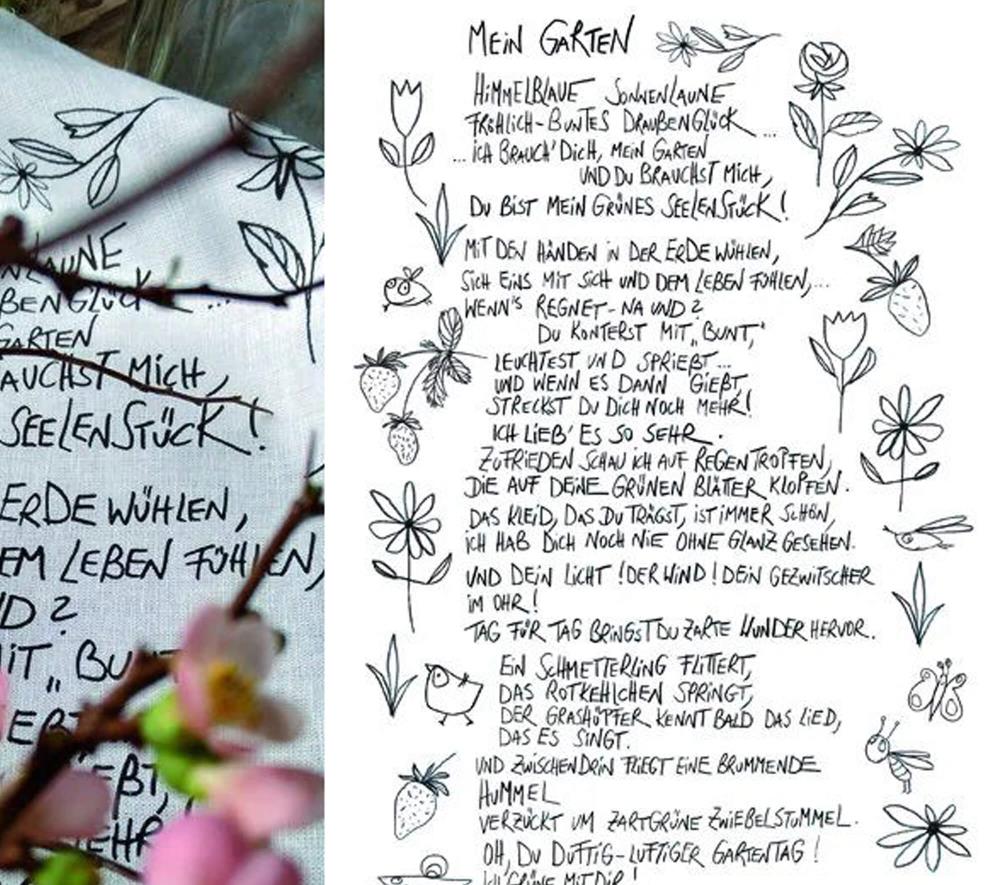 NLAUNE
ßENGLÜCK ...
GARTEN
AUCHST MICH,
SEELENSTÜCK!
ERDE WÜHLEN,
EM LEBEN FÜHLEN,
D?
IT „BU
EBT
EßT,
EHR
MEIN GARTEN
HIMMELBLAUE SONNENLAUNE
FRÖHLICH-BUNTES DRAUßENGLÜCK ...
... ICH BRAUCH' DICH, MEIN GARTEN
UND DU BRAUCHST MICH,
DU BIST MEIN GRÜNES SEELENSTÜCK!
MIT DEN HÄNDEN IN DER ERDE WÜHLEN,
SICH EINS MIT SICH UND DEM LEBEN FÜHLEN,...
WENN'S REGNET - NA UND?
DU KONTERST MIT „BUNT",
LEUCHTEST UND SPRIEßT...
UND WENN ES DANN GIEßT,
STRECKST DU DICH NOCH MEHR!
ICH LIEB' ES SO SEHR.
ZUFRIEDEN SCHAU ICH AUF REGENTROPFEN,
DIE AUF DEINE GRÜNEN BLÄTTER KLOPFEN.
DAS KLEID, DAS DU TRÄGST, IST IMMER SCHÖN,
ICH HAB DICH NOCH NIE OHNE GLANZ GESEHEN.
UND DEIN LICHT! DER WIND! DEIN GEZWITSCHER
IM OHR!
TAG FÜR TAG BRINGST DU ZARTE WUNDER HERVOR.
EIN SCHMETTERLING FLITTERT,
DAS ROTKEHLCHEN SPRINGT,
DER GRASHÜPFER KENNT BALD DAS LIED,
DAS ES SINGT.
UND ZWISCHENDRIN FLIEGT EINE BRUMMENDE
HUMMEL
VERZÜCKT UM ZARTGRÜNE ZWIEBELSTUMMEL.
OH, DU DUFTIG-LUFTIGER GARTENTAG!
ICH GRÜNE MIT DIR!